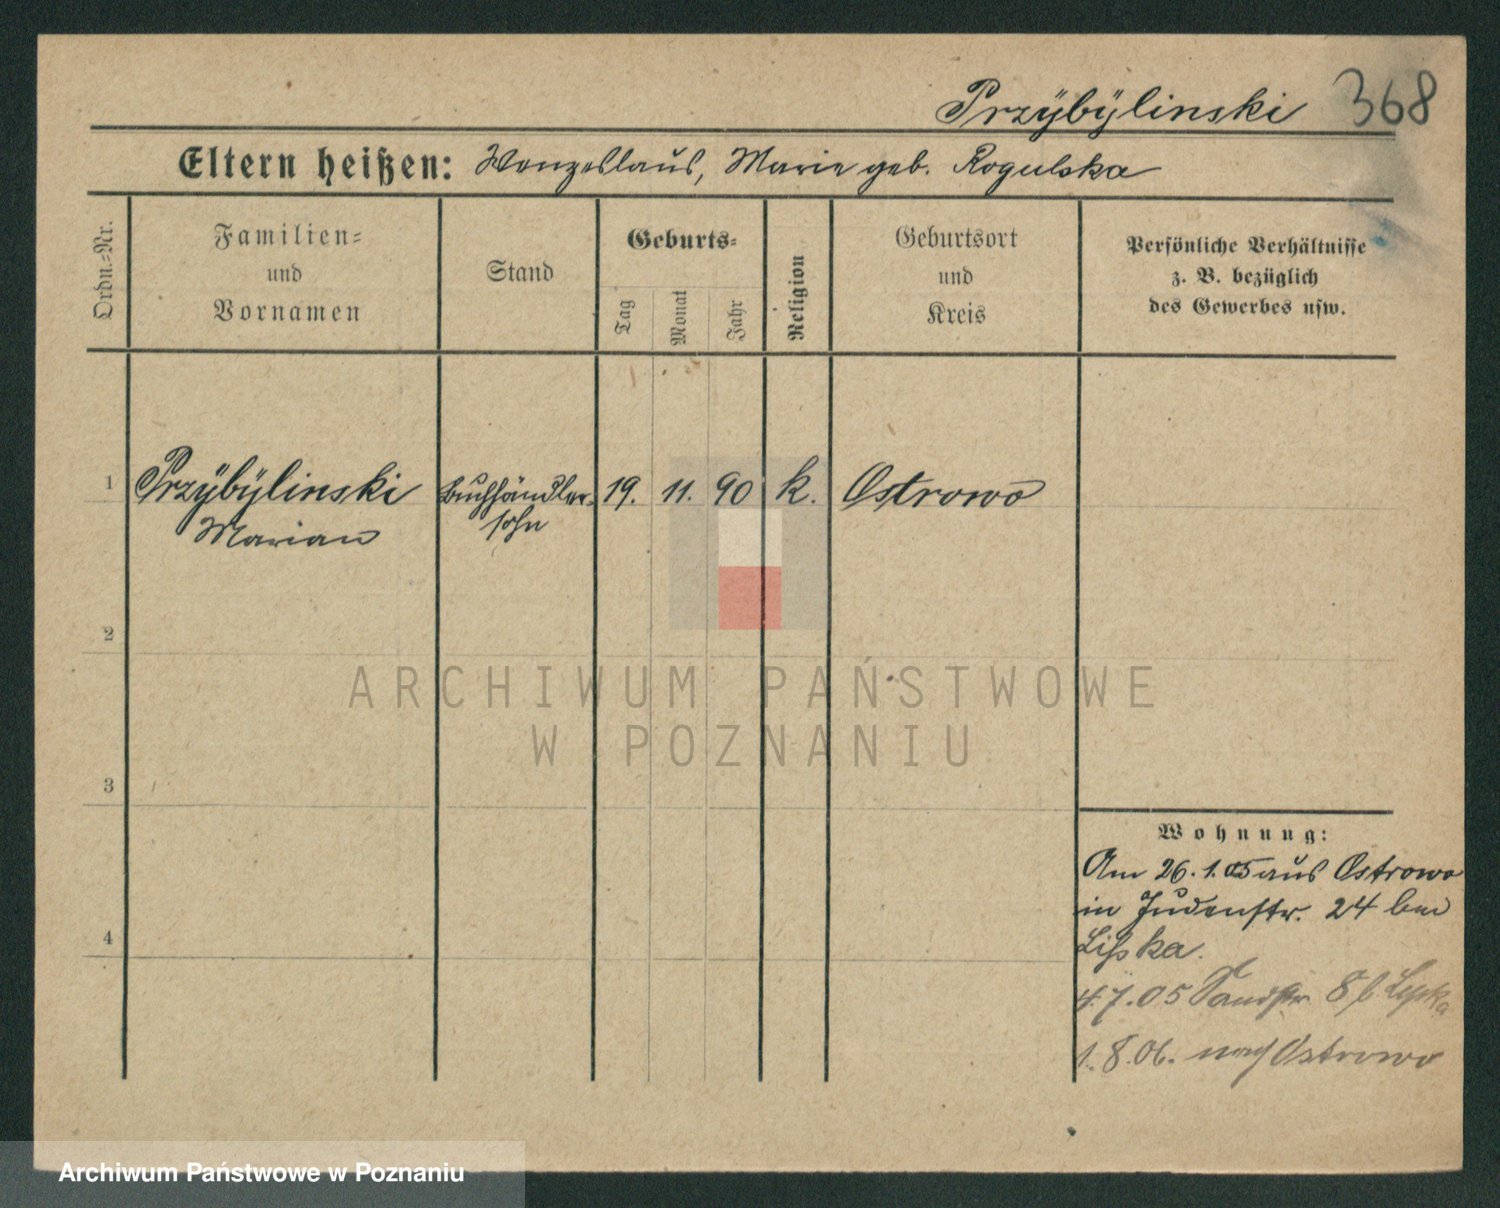 Przÿbÿlinski 368
Eltern heißen: Wenzeslaus, Marie geb. Rogulska
Ordn.=Nr.
Familien=
und
Vornamen
Stand
Geburts=
Tag
Monat
Jahr
Religion
Geburtsort
und
Kreis
Persönliche Verhältnisse
z. B. bezüglich
des Gewerbes usw.
1 Przÿbÿlinski Buchhändler- 19. 11. 90 k. Ostrowo
Marian sohn
2
3
4
Wohnung:
Am 26.1.05 aus Ostrowo
in Judenstr. 24 bei
Lißka.
4.7.05 Sandstr. 8 b
1.8.06. nach Ostrowo
ARCHIWUM PAŃSTWOWE
W POZNANIU
Archiwum Państwowe w Poznaniu